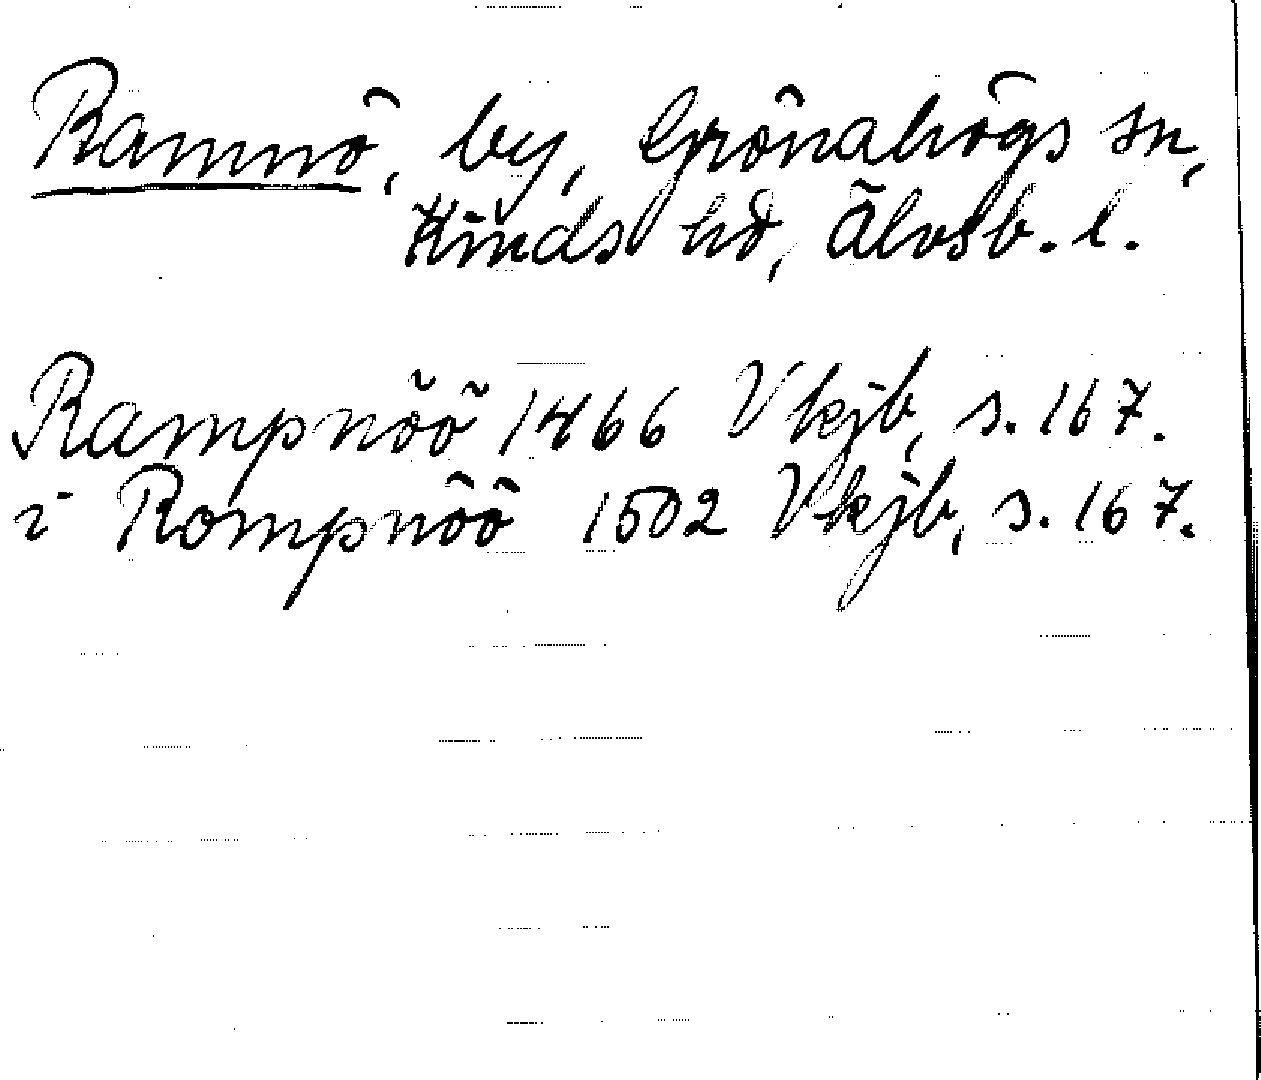 Ramnö, by, Grönahögs sn,
Kinds hd, Älvsb. l.
Rampnöö 1466 Vkjb, s. 167.
i Rompnöö 1502 Vkjb, s. 167.